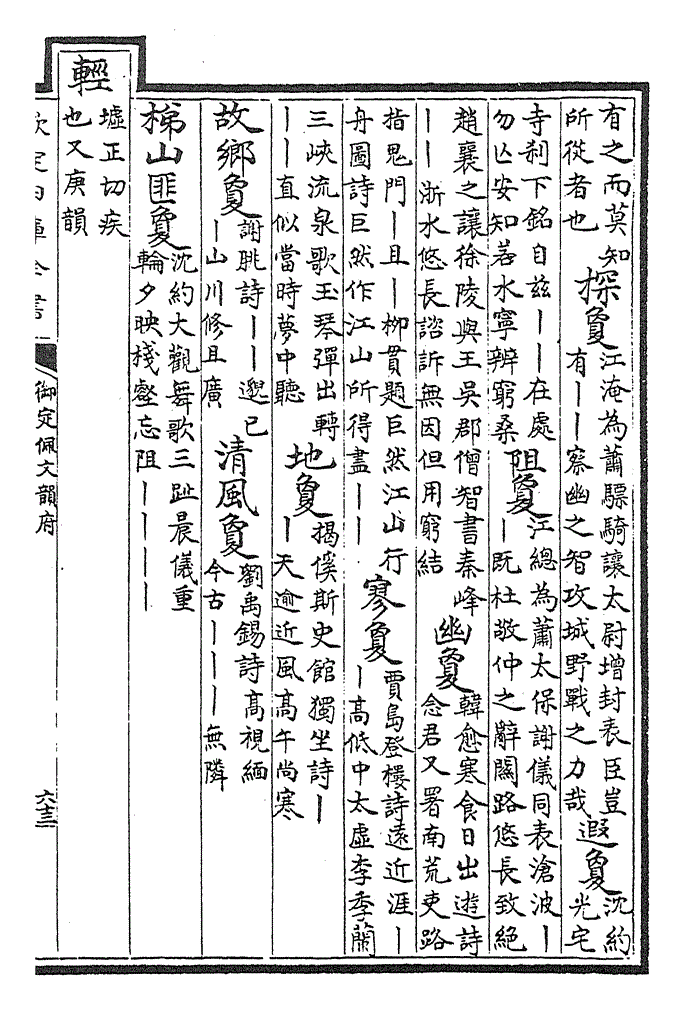 有之而莫知
所從者也
探夐
江淹為蕭驃騎讓太尉增封表臣豈
有――察幽之智攻城野戰之力哉
遐夐
沈約
光宅
寺刹下銘自兹――在處
勿亾安知若水寧辨窮桑
阻夐
江總為蕭太保謝儀同表滄波―
―既杜敬仲之辭闗路悠長致絶
趙襄之讓徐陵與王吳郡僧智書秦峰
――浙水悠長諮訴無因但用窮結
幽夐
韓愈寒食日出遊詩
念君又署南荒吏路
指鬼門―且―栁貫題巨然江山行
舟圖詩巨然作江山所得盡――
寥夐
賈島登樓詩遠近涯―
―高低中太虚李季蘭
三峽流泉歌玉琴彈出轉
――直似當時夢中聽
地夐
揭傒斯史館獨坐詩―
―天逾近風髙午尚寒
故鄉夐
謝朓詩――邈已
―山川修且廣
清風夐
劉禹錫詩髙視緬
今古―――無隣
梯山匪夐
沈約大觀舞歌三趾晨儀重
輪夕映棧壑忘阻――――
輕
墟正切疾
也又庚韻
欽定四庫全書
御定佩文韻府
六十三